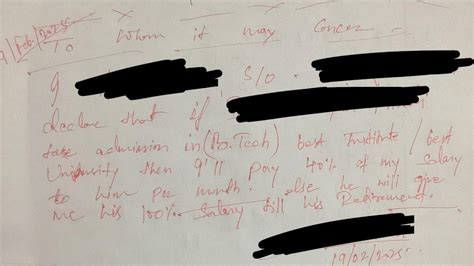 19/Feb/2025
To Whom it may Concer
I S/o
declare that if
take admission in (B.Tech) best Institute / best
University then I'll pay 40% of my salary
to him per month. else he will give
me his 100% Salary till his Retirement.
19/02/2025